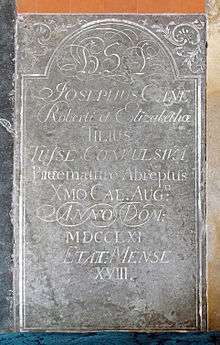 H. S. J.
Josephus Cane
Roberti et Elizabethæ
Filius
Tusse Convulsiva
Præmature Abreptus
XMO CAL. AUG:
ANNO DOM:
MDCCLXI
ETAT: MENSE
XVIII.